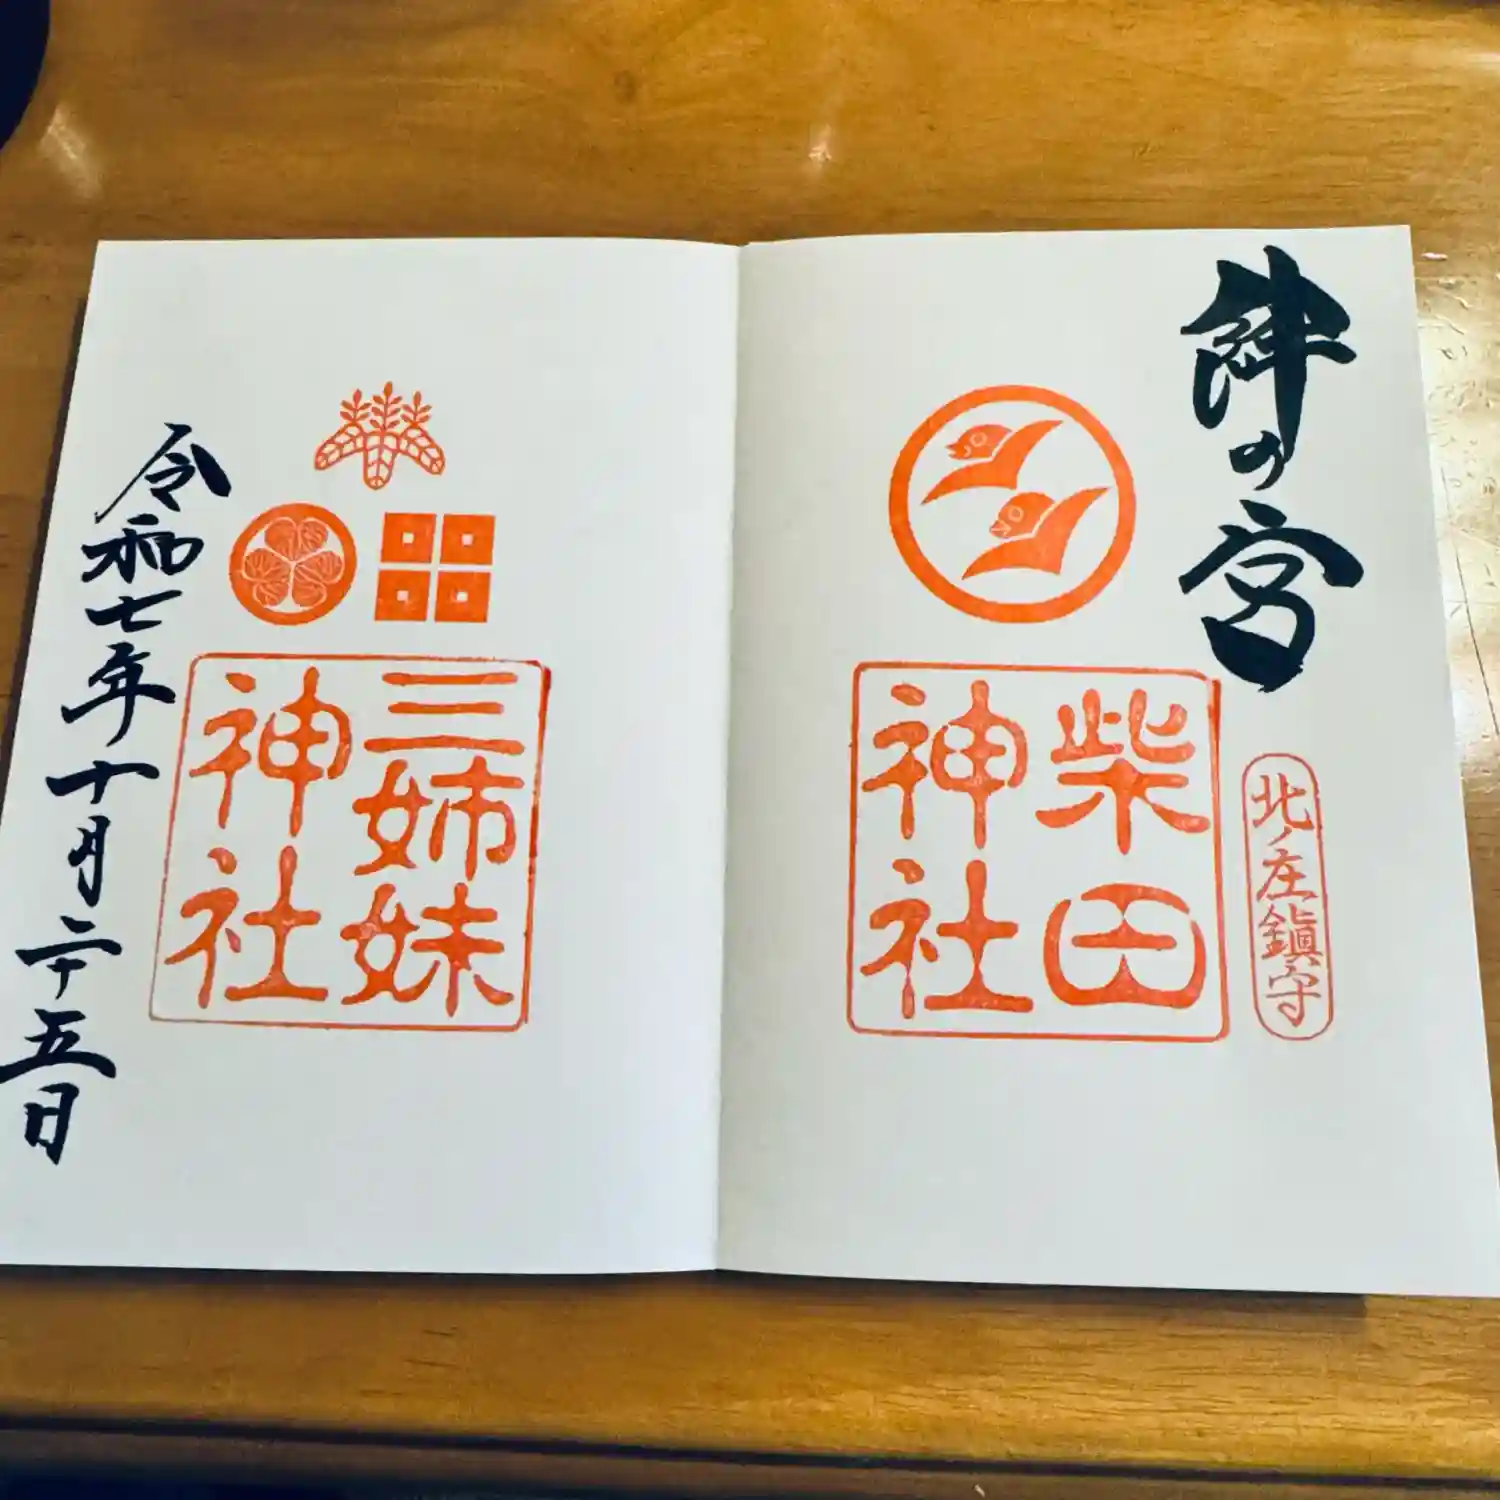 絆の宮
北ノ庄鎮守
柴田
神社
三姉妹
神社
令和七年十月二十五日